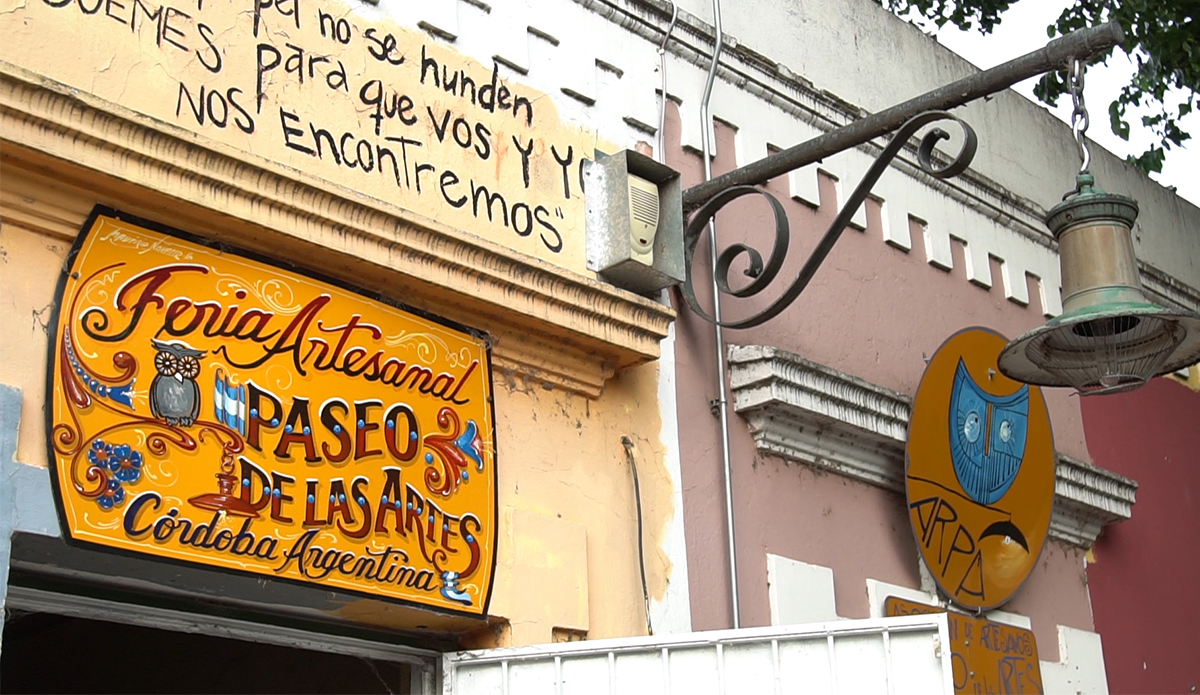 pel no se hunden
para que vos y yo
nos encontremos"
Feria Artesanal
PASEO
DE LAS ARTES
Córdoba Argentina
ARPA